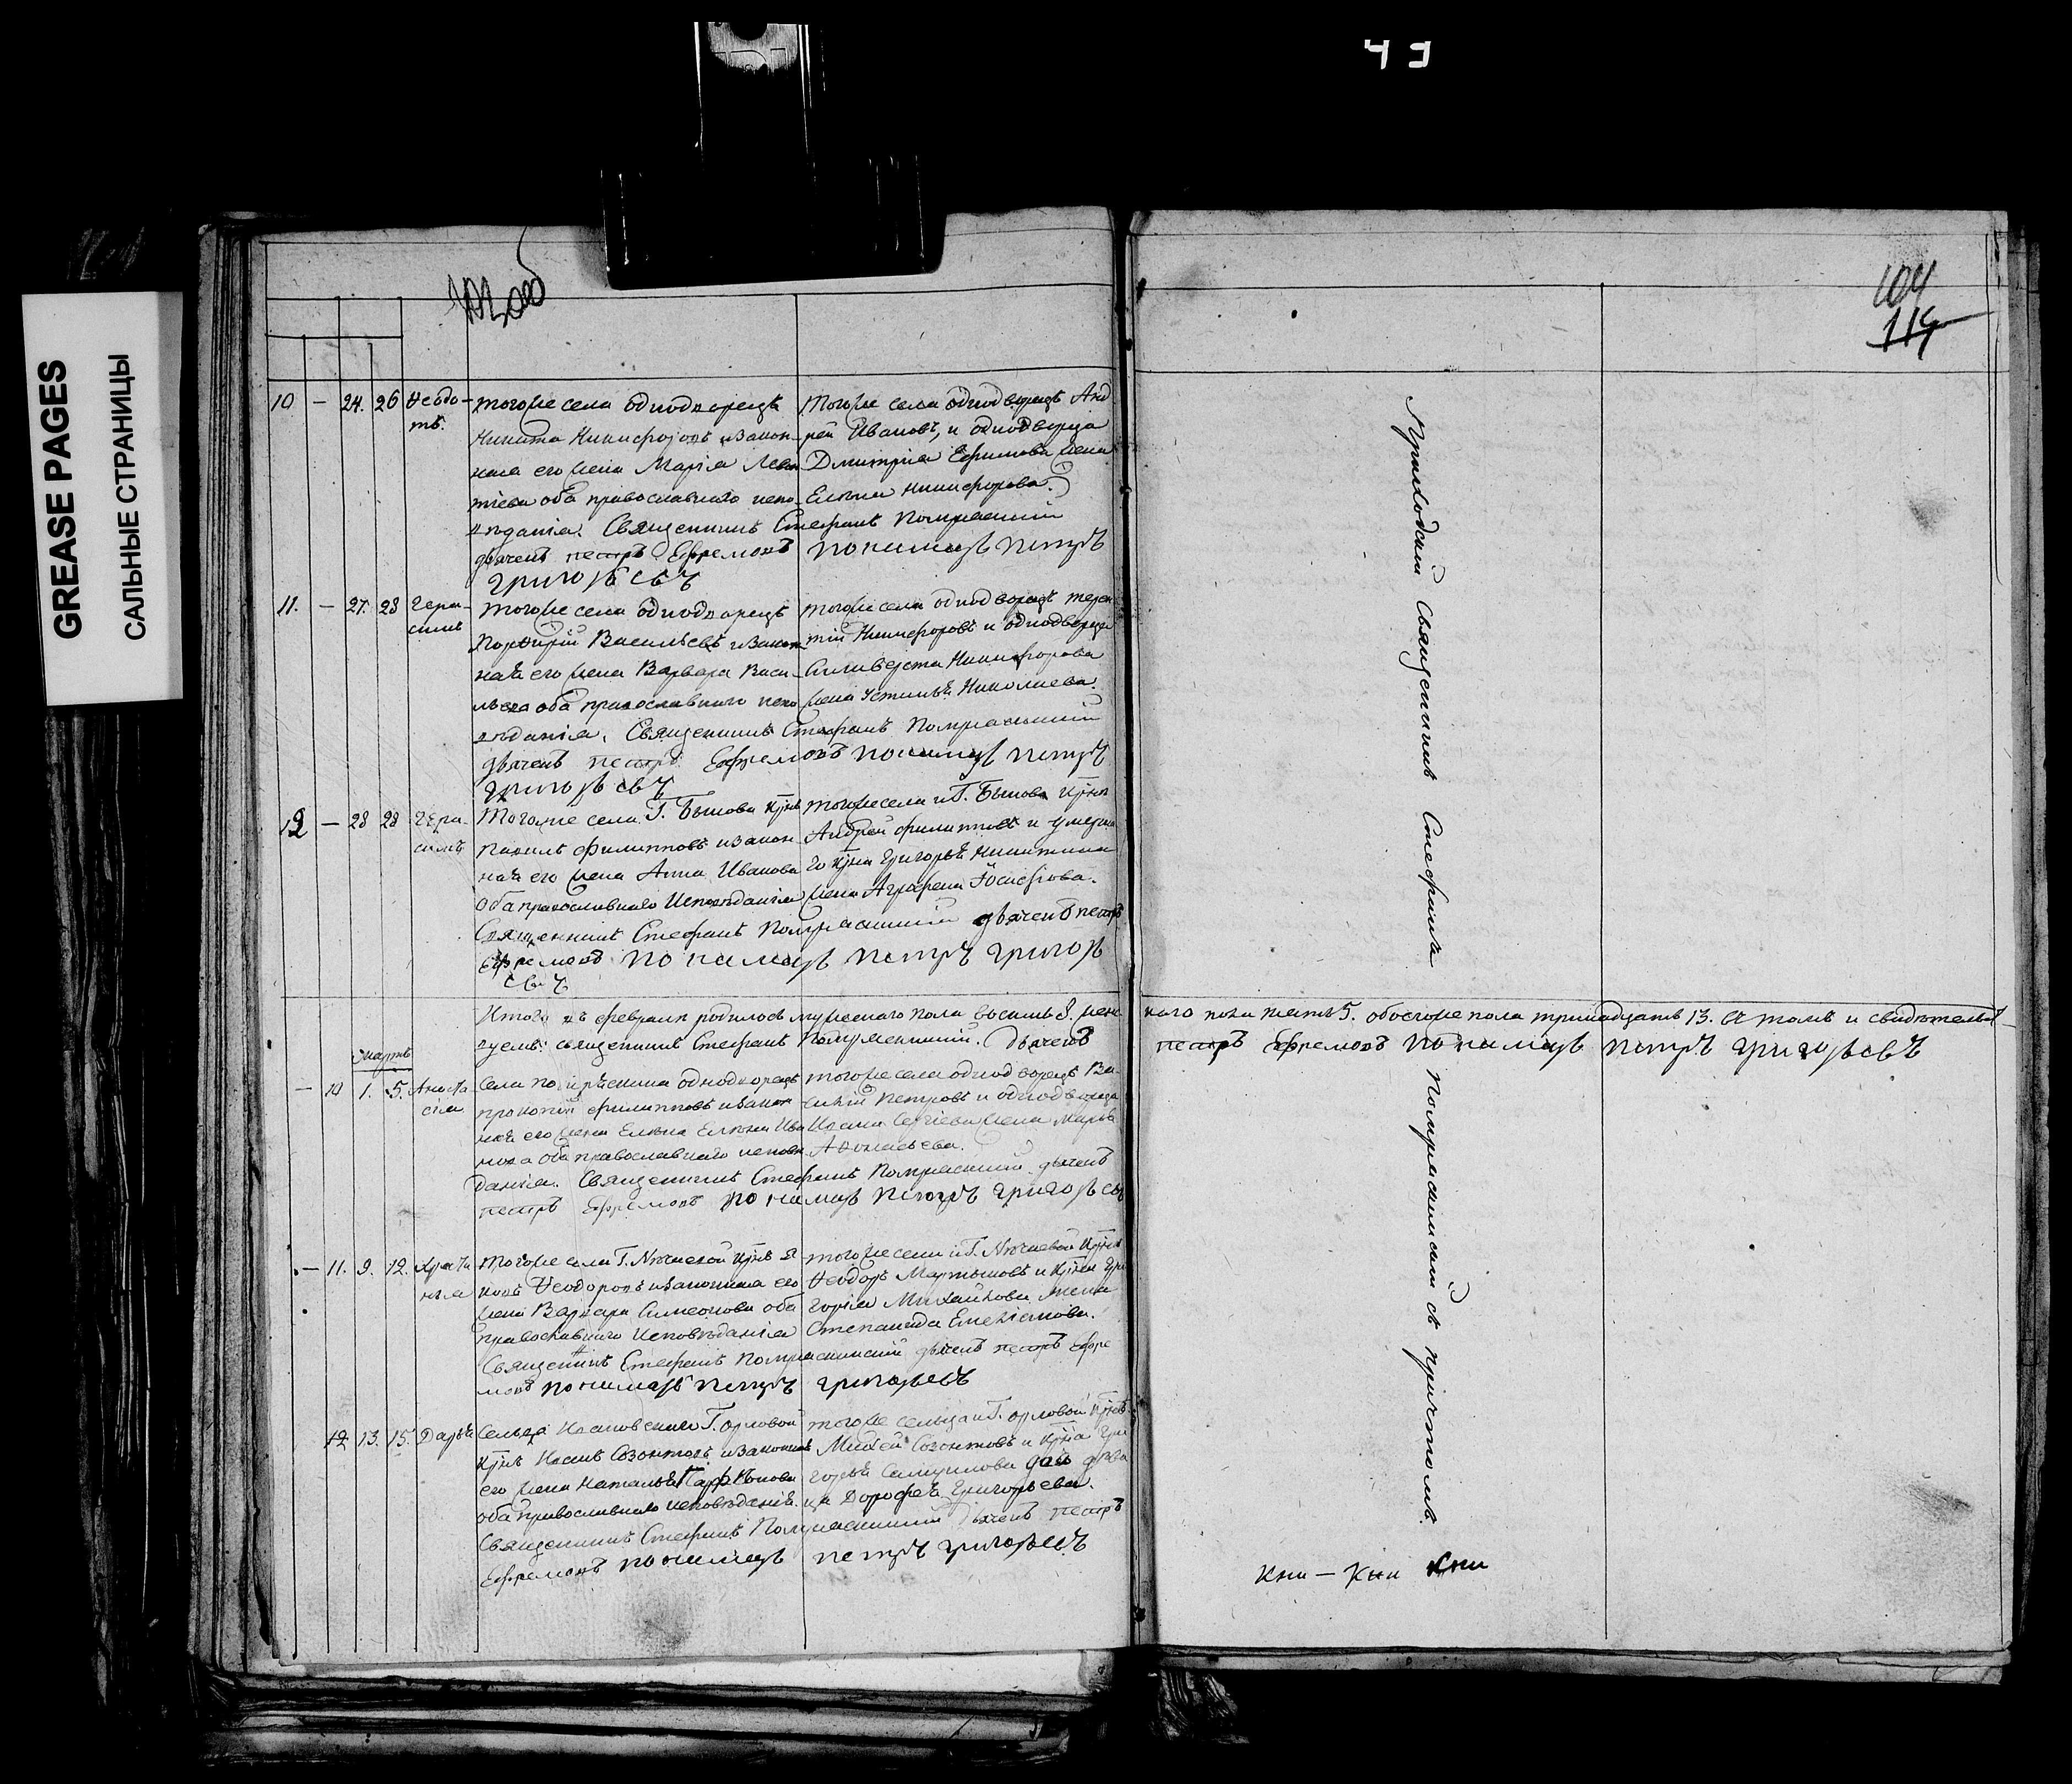 GREASE PAGES
САЛЬНЫЕ СТРАНИЦЫ
104
119
10 — 24. 26 Ѳеодо-
тъ.
тогоже села однодворецъ
Никита Никифоровъ и закон-
ная его жена Марія Леон
тіева оба православнаго испо-
вѣданія. Священникъ Стефанъ
дьячекъ петръ Ефремовъ пономарь Петръ
григорьевъ
Тогоже села однодворецъ Анд
рей Ивановъ, и однодворца
Дмитрія Ефимова жена
Елена Никифорова.
11. — 27. 28 Гера-
симъ
тогоже села однодворецъ
Порфирій Васильевъ и закон-
ная его жена Варвара Васи-
льева оба православнаго испо
вѣданія. Священникъ Стефанъ
дьячекъ петръ Ефремовъ пономарь петръ
григорьевъ
тогоже села однодворецъ терен
тій Никифоровъ и однодворца
Силиверста Никифорова
жена Устинья Николаева.
12 — 28 28 Гера-
симъ
Тогоже села Г. Бышова крнъ
Павелъ Филипповъ и закон
ная его жена Анна Иванова
оба православнаго Исповѣданія
Священникъ Стефанъ дьячекъ петръ
Ефремовъ пономарь петръ григорь
евъ
тогоже села и Г. Бышова крнъ
Андрей филипповъ и умерша
го крна Григорья Никитина
жена Аграфена Іосифова.
Итого въ февралѣ родилось мужескаго пола восемь 8. женс
каго пола пять 5. обоегоже пола тринадцать 13. въ томъ и свидѣтельст
вуемъ: священникъ Стефанъ дьячекъ
петръ Ефремовъ пономарь петръ григорьевъ
Мартъ
— 10 1. 5. Анаста
сія
Села однодворецъ
прокопій филипповъ и закон
ная его жена Елена Елена Ива
нова оба православнаго исповѣ
данія. Священникъ Стефанъ дьячекъ
петръ Ефремовъ пономарь петръ григорьев
тогоже села однодворецъ Ва-
силій Петровъ и однодворца
Ивана Сергіева жена Марья
Афонасьева.
— 11. 9. 12.
тогоже села Г. крнъ Я
ковъ Ѳеодоровъ и законная его
жена Варвара Симеонова оба
православнаго Исповѣданія
Священникъ Стефанъ дьячекъ петръ Ефре
мовъ пономарь петръ григорьевъ
тогоже села и Г. крнъ
Ѳеодоръ Мартыновъ и крна Гри
горія Михайлова жена
Степанида Емельянова.
12 13. 15. Дарья
Сельца Г. Орловой
крнъ Иванъ Созонтовъ и законная
его жена Наталья
оба православнаго исповѣданія.
Священникъ Стефанъ дьячекъ петръ
Ефремовъ пономарь петръ григорьевъ
тогоже сельца и Г. Орловой крнъ
Михей Созонтовъ и крна Гри
горья Самуилова дочь дѣви
ца Дорофея Григорьева.
Приходскій священникъ Стефанъ съ причтомъ.
Кни — Кни Кни